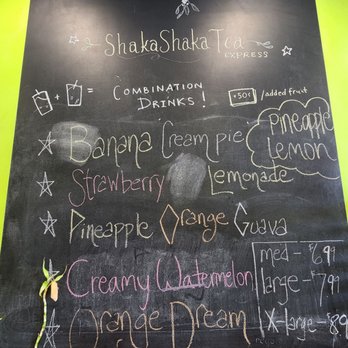 ShakaShaka Tea
EXPRESS
+ = COMBINATION DRINKS!
+50¢ /added fruit
Banana Cream pie
Pineapple Lemon
Strawberry Lemonade
Pineapple Orange Guava
Creamy Watermelon
Orange Dream
med - $6.99
large - $7.99
X-large - $8